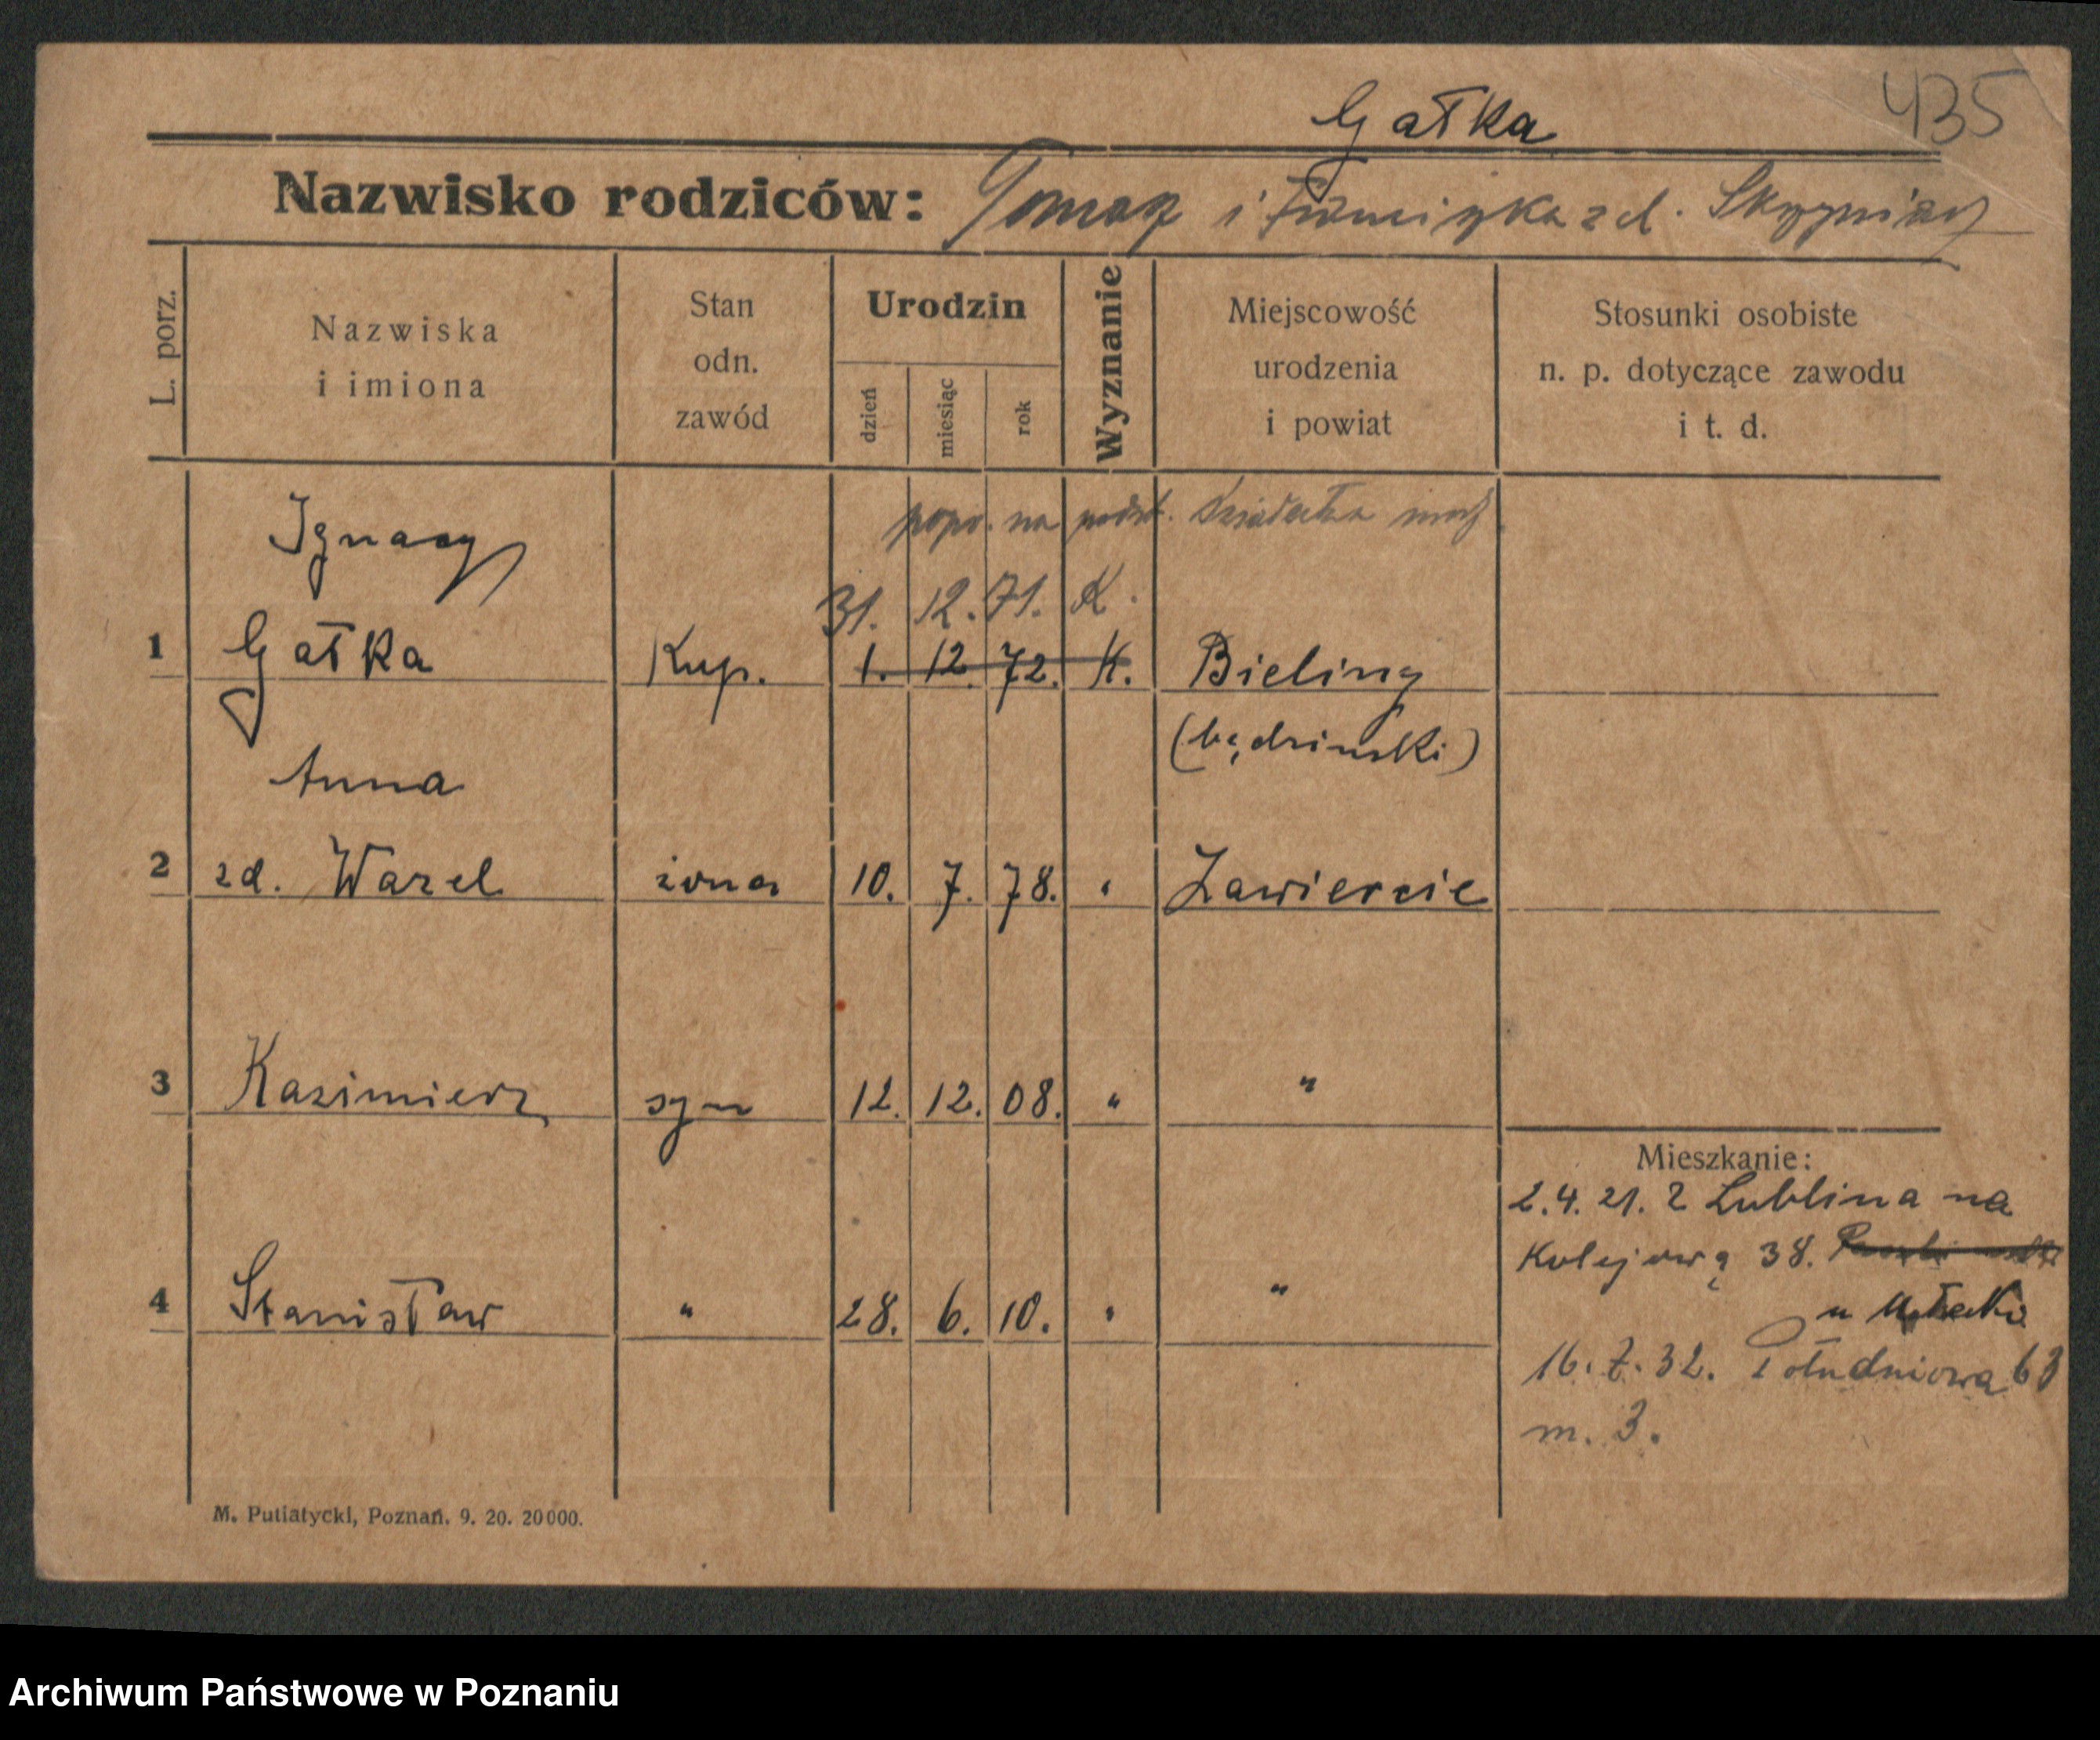 435
Gałka
Nazwisko rodziców: Tomasz i Franciszka zd. Skrzypiciel
L. porz.
Nazwiska i imiona
Stan odn. zawód
Urodzin
dzień
miesiąc
rok
Wyznanie
Miejscowość urodzenia i powiat
Stosunki osobiste n. p. dotyczące zawodu i t. d.
popr. na podst.
Ignacy
31. 12. 71. K.
1 Gałka Kup. 1. 12. 72. K. Bieliny
(będziński)
Anna
2 zd. Warel żona 10. 7. 78. " Zawiercie
3 Kazimierz syn 12. 12. 08. " "
Mieszkanie:
2. 4. 21. z Lublina na
Kolejową 38.
u
4 Stanisław " 28. 6. 10. " "
16. 7. 32. Południowa 63
m. 3.
M. Putiatycki, Poznań. 9. 20. 20000.
Archiwum Państwowe w Poznaniu